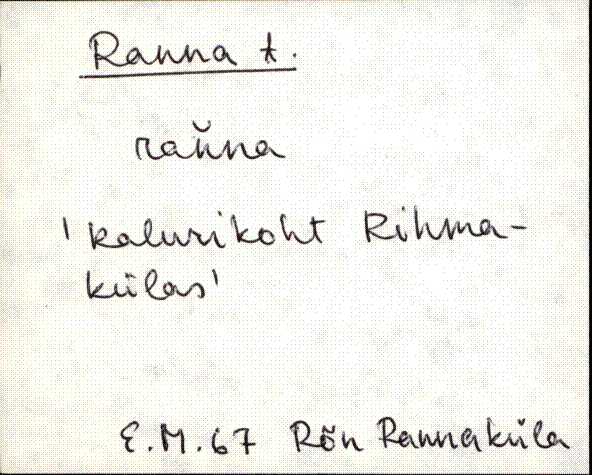 Ranna t.
rańna
'kalurikoht Rihma-
külas'
E.M.67 Rõn Rannaküla